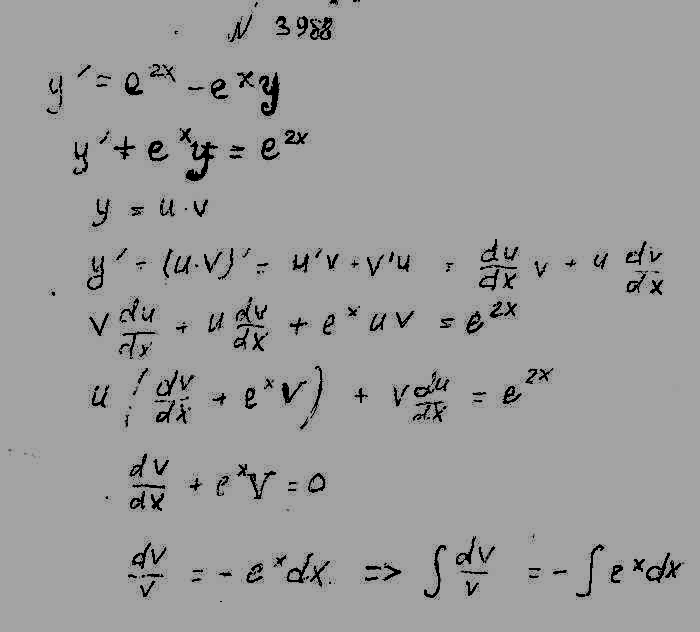 № 3988
y' = e^{2x} - e^x y
y' + e^x y = e^{2x}
y = u · v
y' = (u·v)' = u'v + v'u = \frac{du}{dx} v + u \frac{dv}{dx}
v \frac{du}{dx} + u \frac{dv}{dx} + e^x u v = e^{2x}
u ( \frac{dv}{dx} + e^x v ) + v \frac{du}{dx} = e^{2x}
\frac{dv}{dx} + e^x v = 0
\frac{dv}{v} = - e^x dx => ∫ \frac{dv}{v} = - ∫ e^x dx